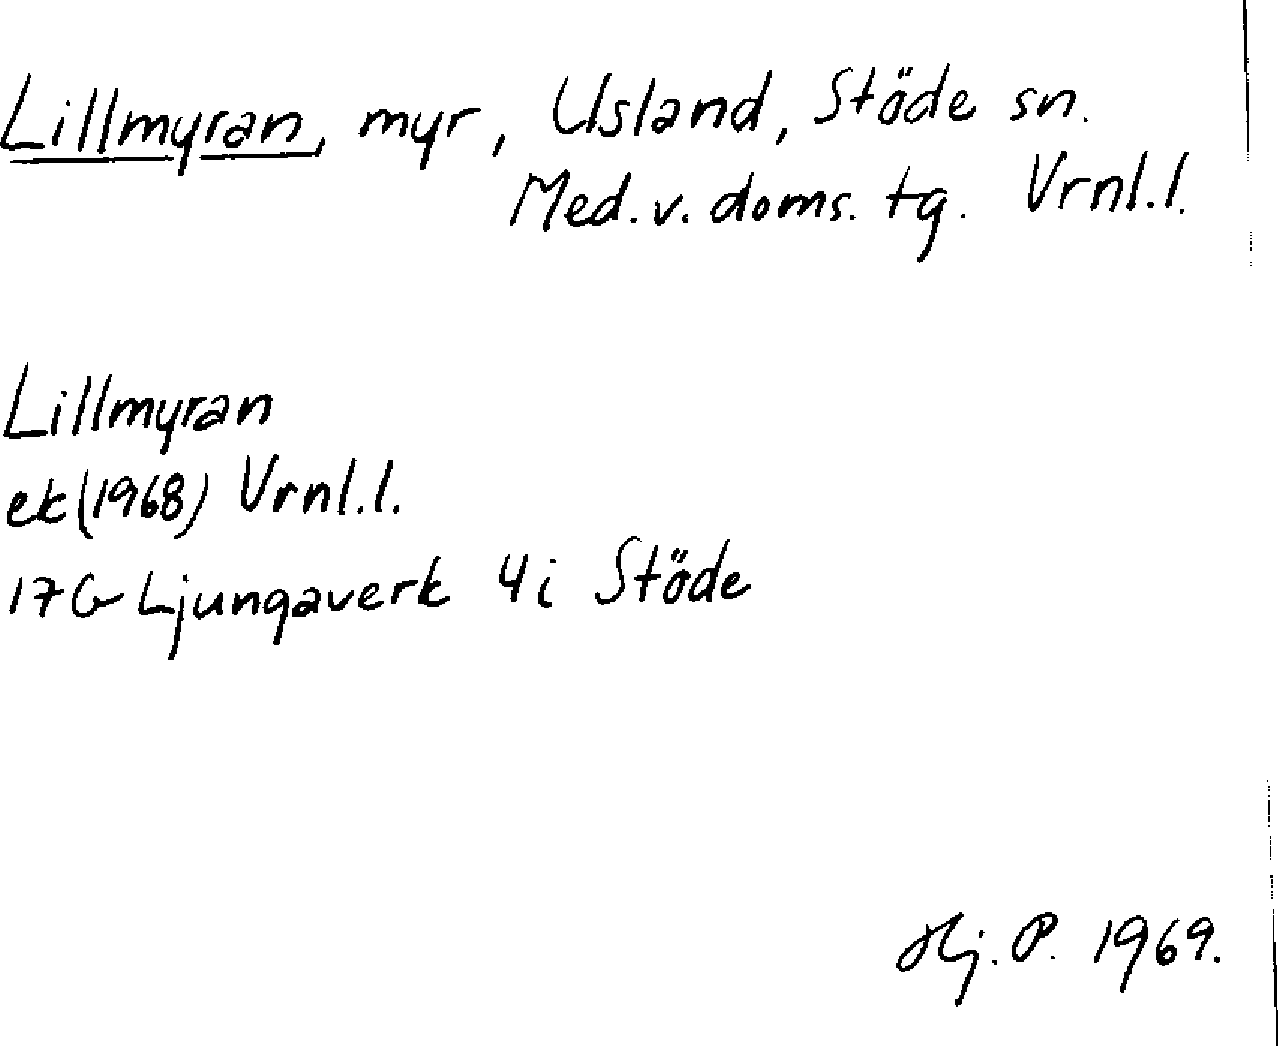 Lillmyran, myr, Usland, Stöde sn.
Med. v. doms. tg. Vrnl.l.
Lillmyran
ek (1968) Vrnl.l.
17G Ljungaverk 4i Stöde
Hj. P. 1969.